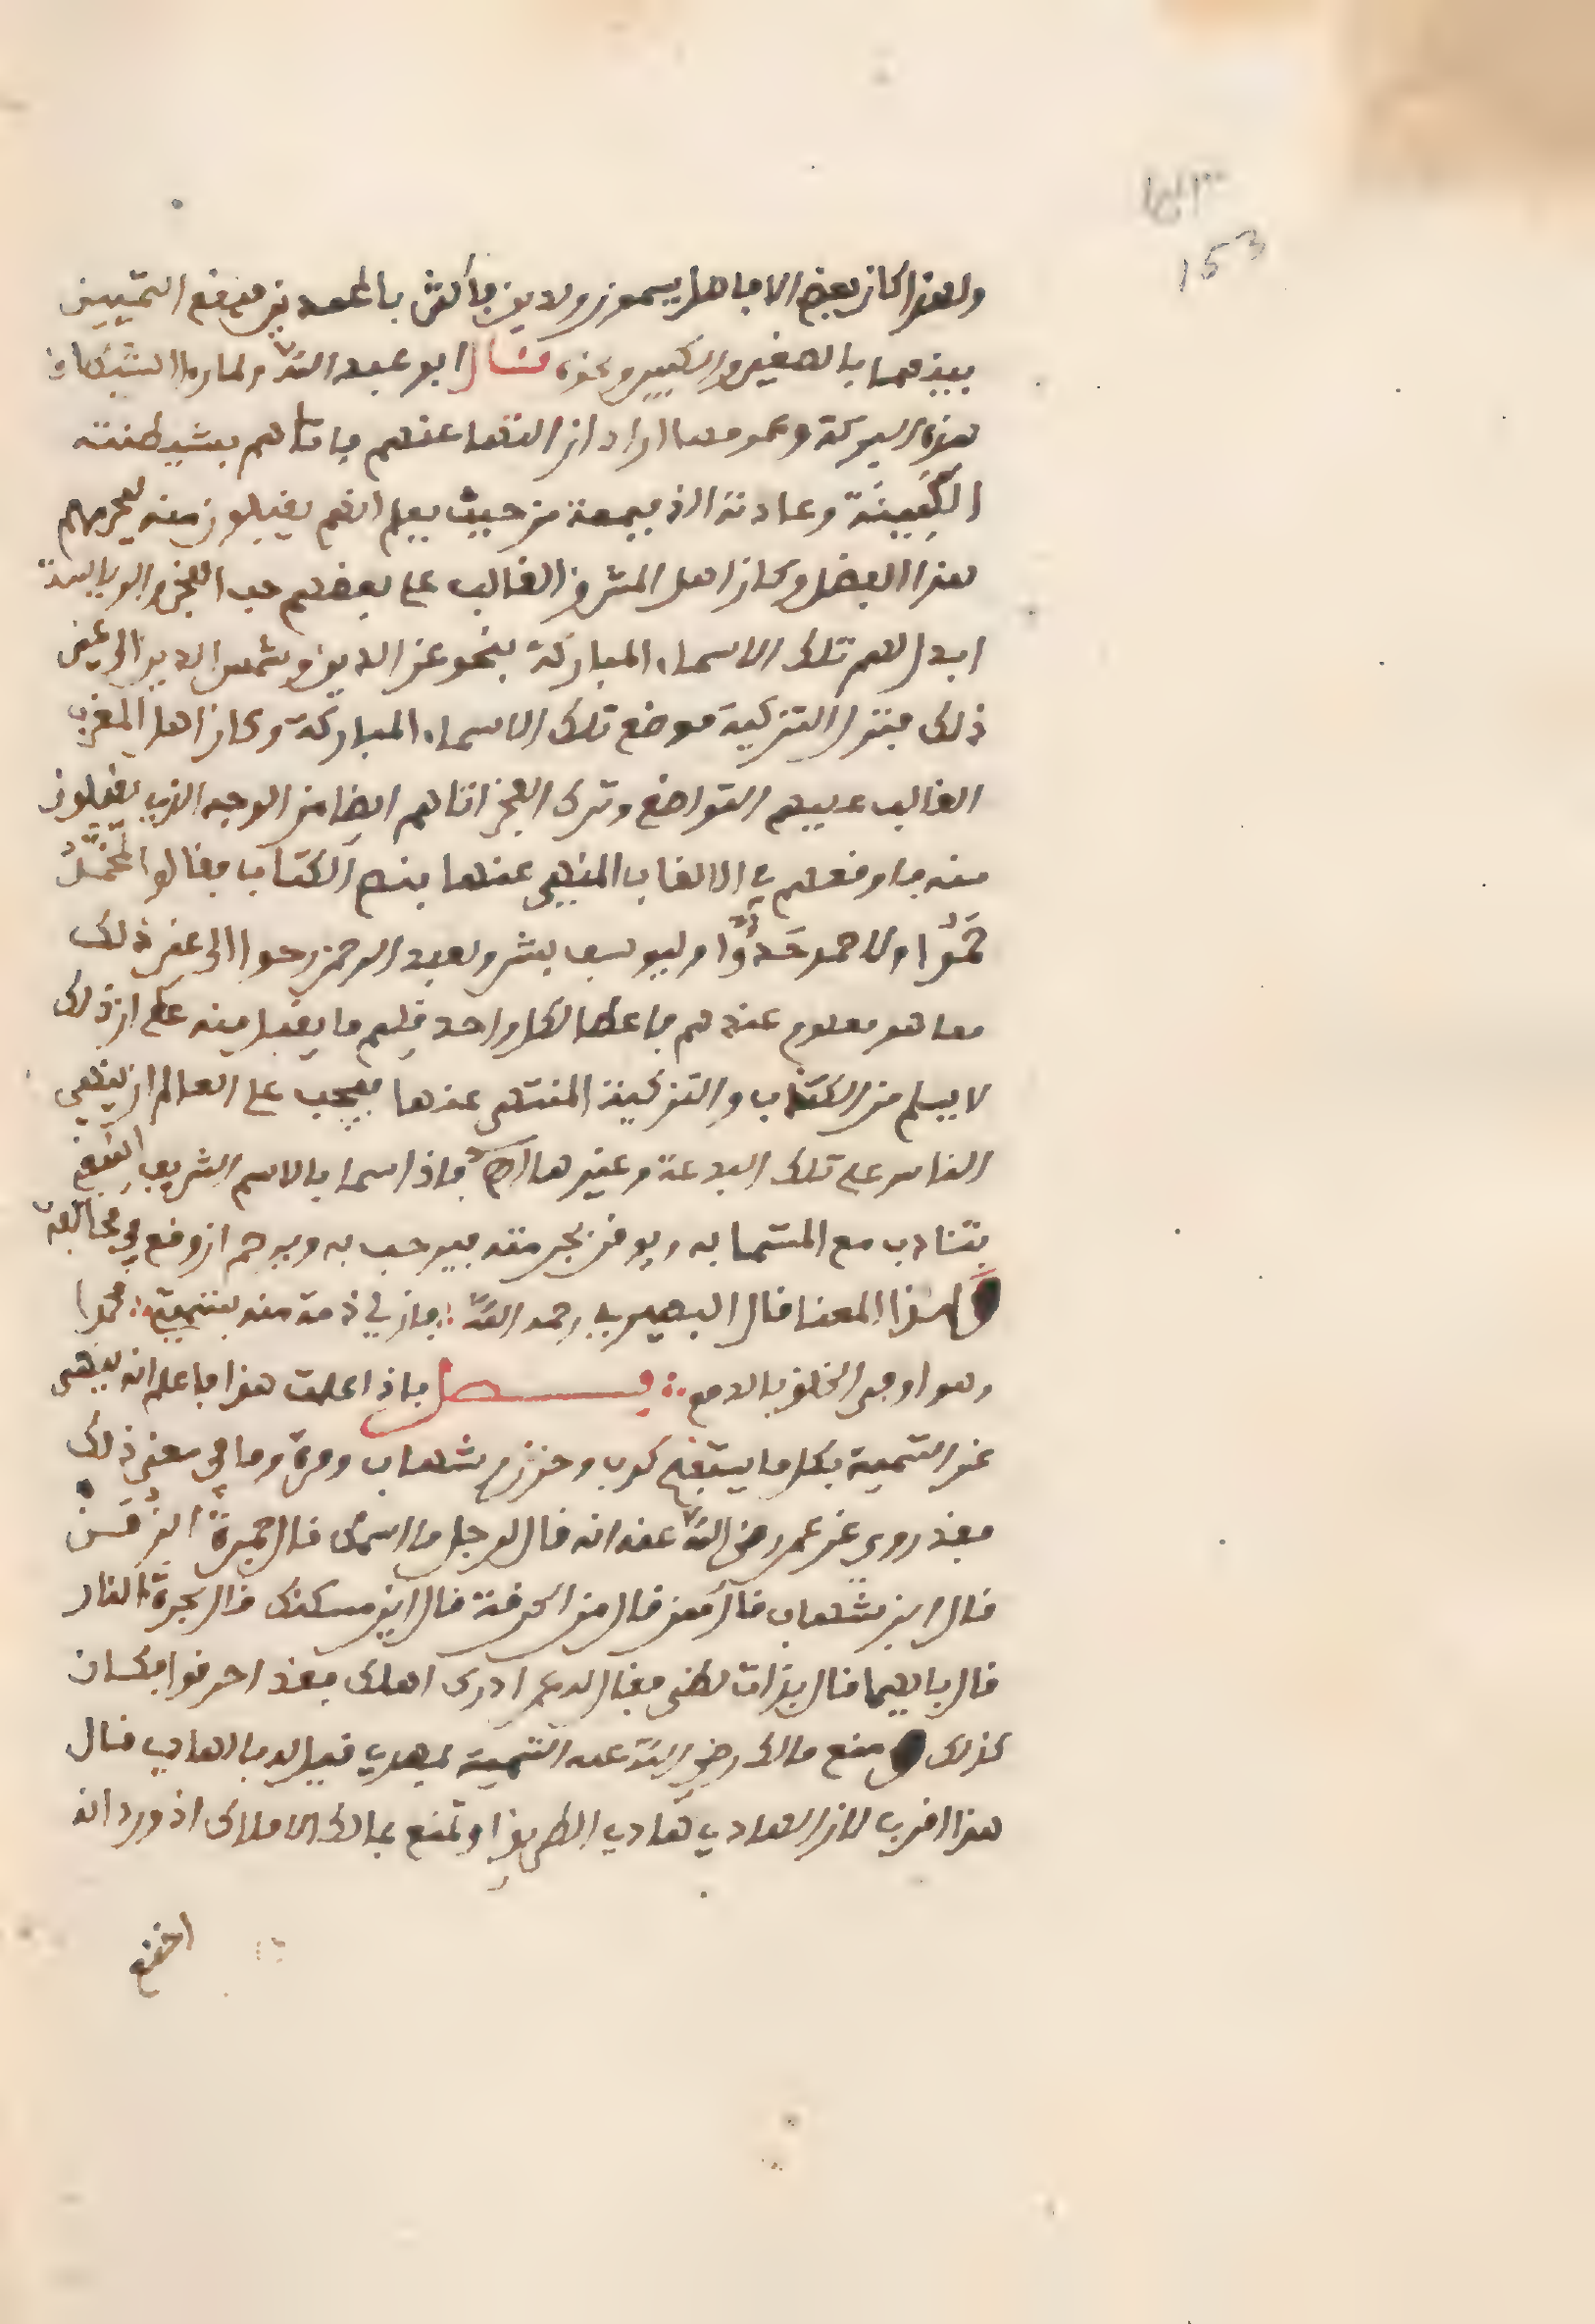 153
ولهذا كان بعض الاباضل يسمون ولدين فاكثر بالمحمدين فيقع التمييز
بينهما بالصغير والكبير ونحوه قال ابو عبد الله ولما را الشيطان
هذه البركة وعمومها اراد ازالتها عنهم فاتاهم بشيطنته
الكمينة وعادته الذميمة من حيث يعلم انهم يقبلون منه ليحرمهم
هذا الفضل وكان اهل المشرق الغالب على بعضهم حب الفخر والرياسة
ابدل لهم تلك الاسماء المباركة بنحو عز الدين وشمس الدين الى غير
ذلك فنزل التزكية موضع تلك الاسماء المباركة وكان اهل المغرب
الغالب عليهم التواضع وترك الفخر اتاهم ايضا من الوجه الذي يقبلون
منه فاوقعهم في الالقاب المنهي عنها بنص الكتاب فقالوا لمحمد
حمّوا ولاحمد حدّوا وليوسف يسو ولعبد الرحمن رحوا الى غير ذلك
مما هو معلوم عندهم فاعطا لكل واحد قليم ما يقبل منه على ان ذلك
لا يسلم من الكذب والتزكية المنتهى عنها فيجب على العالم ان ينهى
الناس على تلك البدعة وغيرها اهـ فاذا سما بالاسم الشريف
يتادب مع المسما به ويوفي بحرمته فيرحب به ويرحم ان وقع في مخالفة
و لهذا المعنا قال البصيري رحمه الله فان لي ذمة منه بتسميتي محمدا
وهو اوفى الخلق بالذمم فصل فاذا علمت هذا فاعلم انه ينهى
عن التسمية بكل ما يستقبح كحرب وحزن وشهاب ومرة وما في معنى ذلك
فقد روي عن عمر رضي الله عنه انه قال لرجل ما اسمك قال جمرة
قال ابن شهاب قال ممن قال من الحرقة قال اين مسكنك قال بحرة النار
قال بايها قال بذات لظى فقال له عمر ادرك اهلك فقد احرقوا فكان
كذلك و منع مالك رضي الله عنه التسمية بمهدي قيل له فالهادي قال
هذا اقرب لان الهادي هادي الطريق او تمنع بمالك الاملاك اذ ورد انه
اخنع